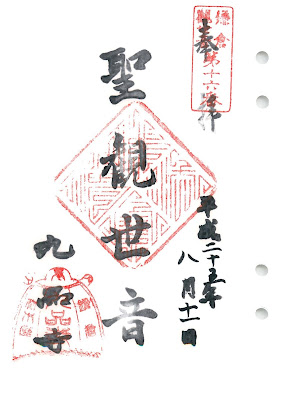 鎌倉
第十六番
奉拝
平成二十五年
八月十一日
聖観世音
九品寺